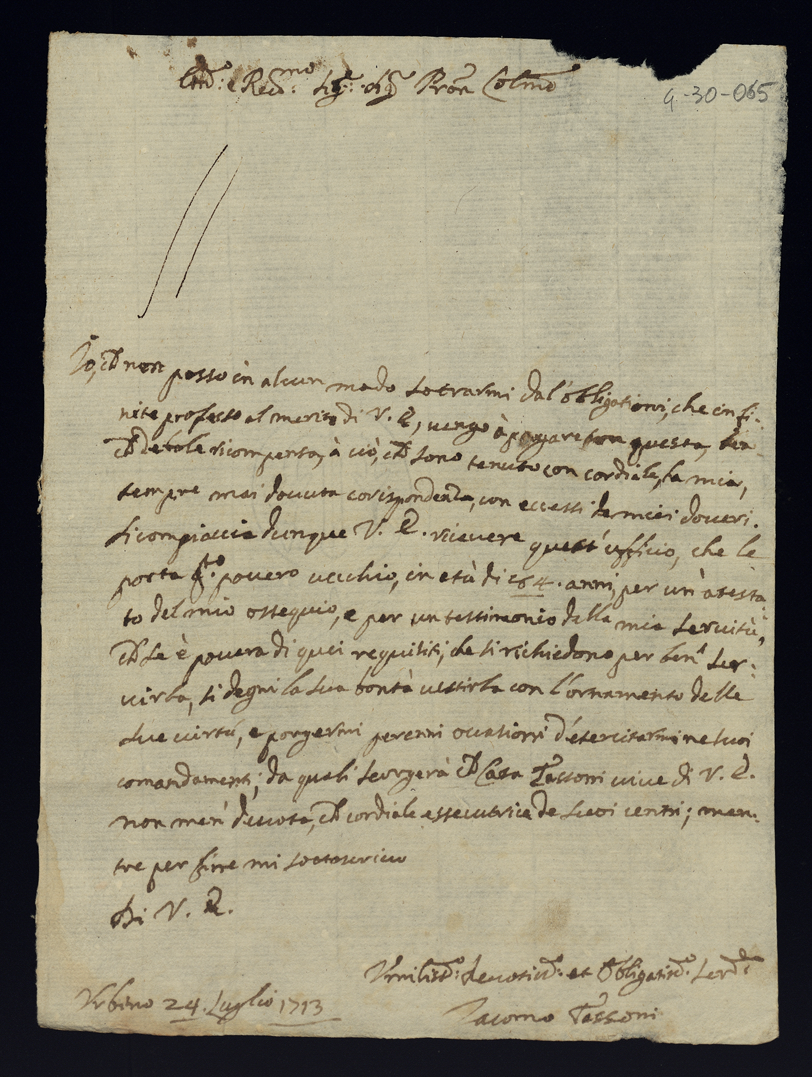 Ill.mo e Re.mo Sig.r Sig.r Pron Colmo
9-30-065
Io, che non posso in alcun modo sotrarmi dal'obligationi, che infi-
nite professo al merito di V. R., vengo à pagare con questa, ben
che debole ricompensa, à ciò, che sono tenuto con cordiale, la mia,
sempre mai douuta corispondenza, con eccessi de miei doueri.
Si compiaccia dunque V. R. riceuere quest'ufficio, che le
porta q.to pouero uechio, in età di 64. anni, per un'atesta-
to del mio ossequio, e per un testimonio della mia seruitù,
che se è pouera di quei requisiti, che si richiedono per ben ser-
uirla, si degni la sua bontà uestirla con l'ornamento delle
sue uirtù, e porgermi perenni occasioni d'esercitarmi ne suoi
comandamenti; da quali scorgerà che Casa Tassoni uiue di V. R.
non men deuota, che cordiale essecutrice de suoi cenni; men-
tre per fine mi sottoscriuo
Di V. R.
Vmiliss.o deuotiss.o et Obligatiss.o Ser.re
Vrbino 24. Luglio 1713
Iacomo Tassoni